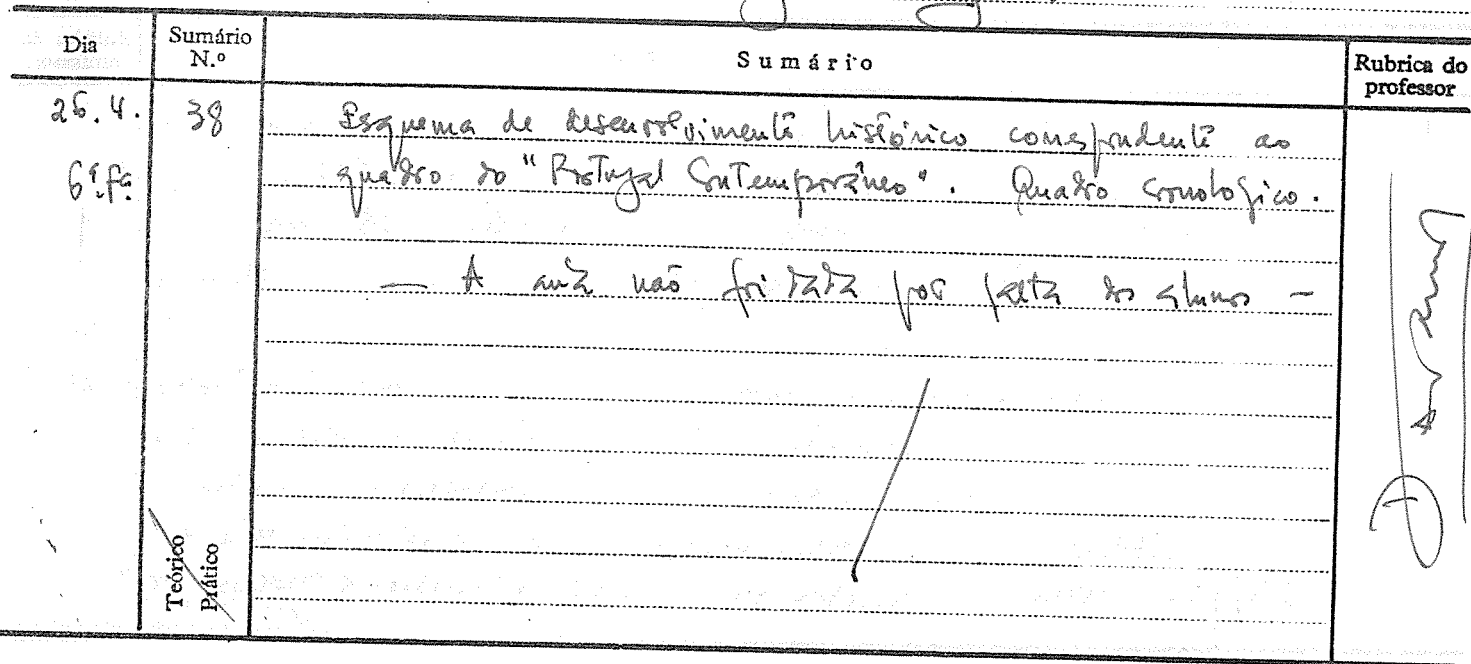 Dia
Sumário N.º
Sumário
Rubrica do professor
26.4. 38 Esquema de desenvolvimento histórico correspondente ao
6ª.fª. quadro do "Portugal Contemporâneo". Quadro cronológico.
— A aula não foi dada por falta dos alunos —
Teórico
Prático